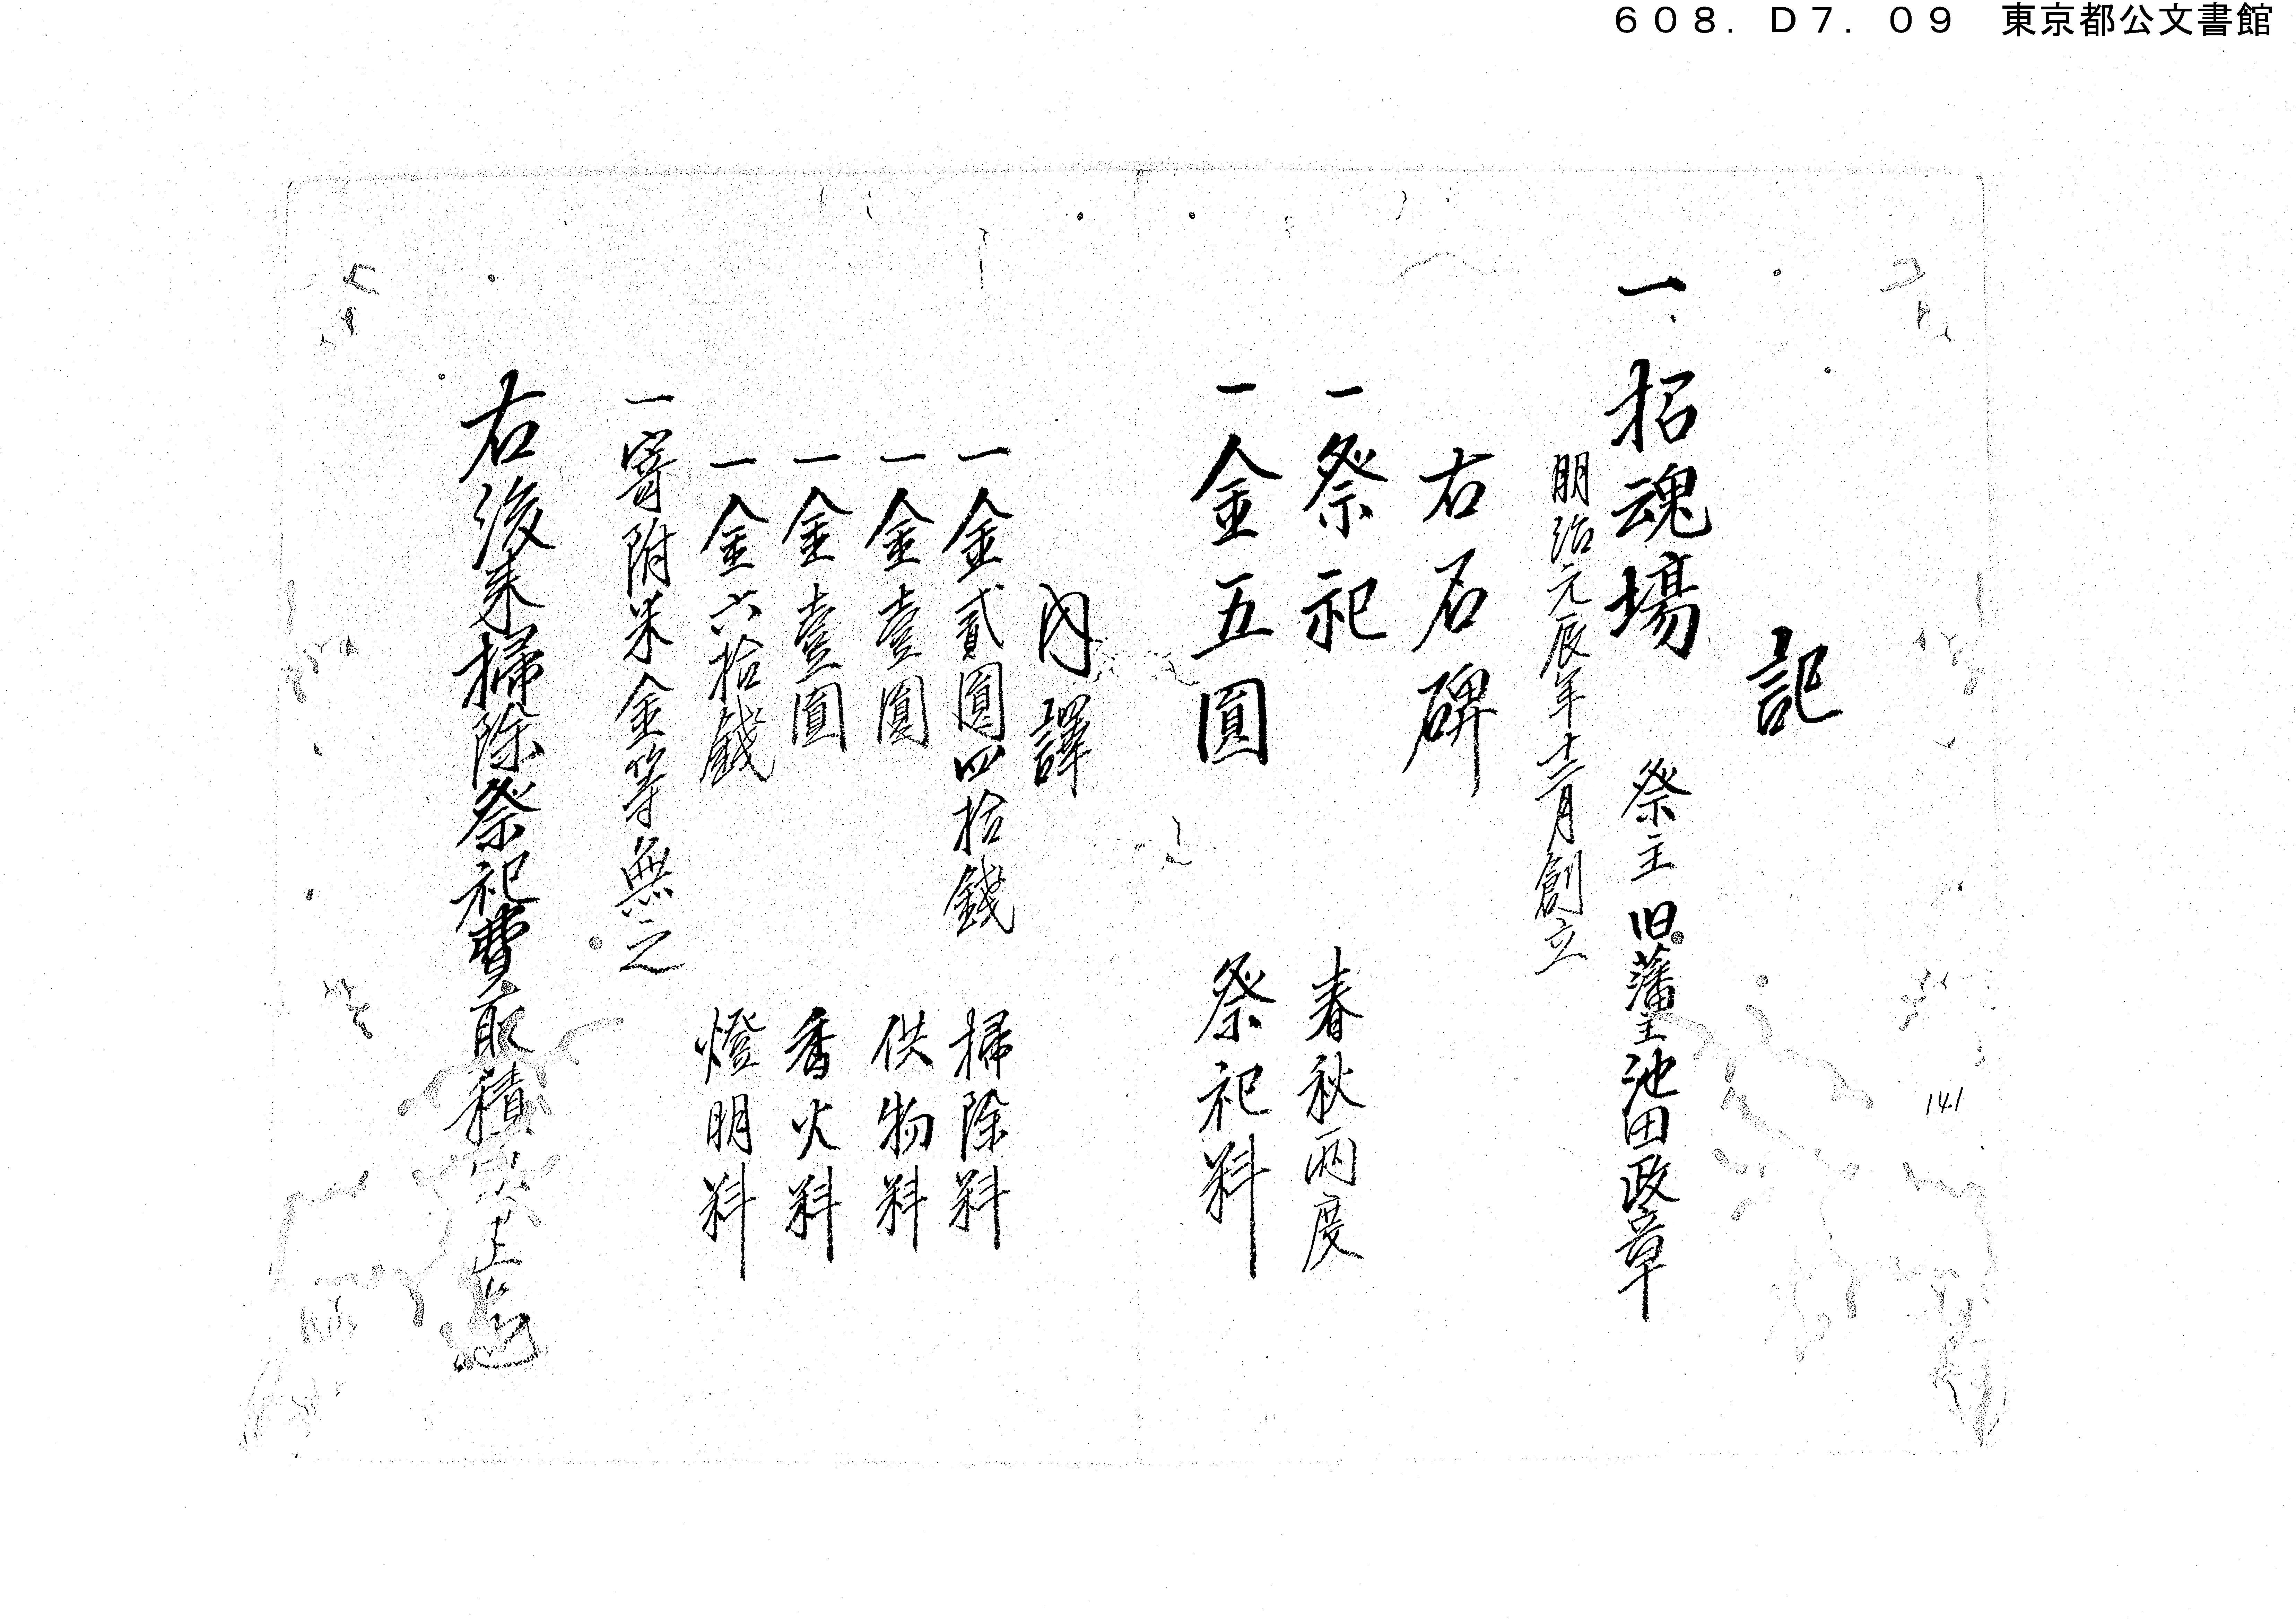 ６０８．Ｄ７．０９　東京都公文書館
記
一招魂場　祭主旧藩主池田政章
明治元辰年十二月創立
右石碑
一祭祀　春秋両度
一金五圓　祭祀料
内譯
一金貳圓四拾錢　掃除料
一金壹圓　供物料
一金壹圓　香火料
一金六拾錢　燈明料
一寄附米金等無之
右後来掃除祭祀費取積
141